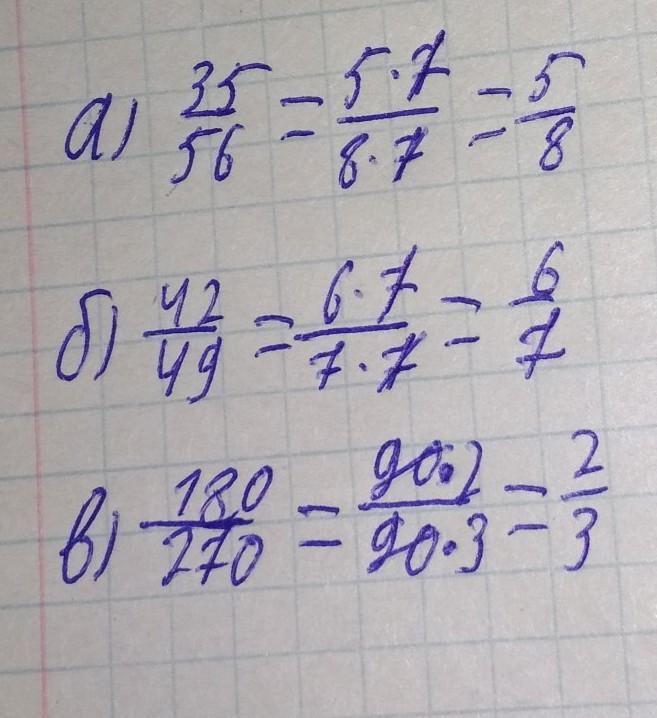 а) 35/56 = 5·7/8·7 = 5/8
б) 42/49 = 6·7/7·7 = 6/7
в) 180/270 = 90·2/90·3 = 2/3